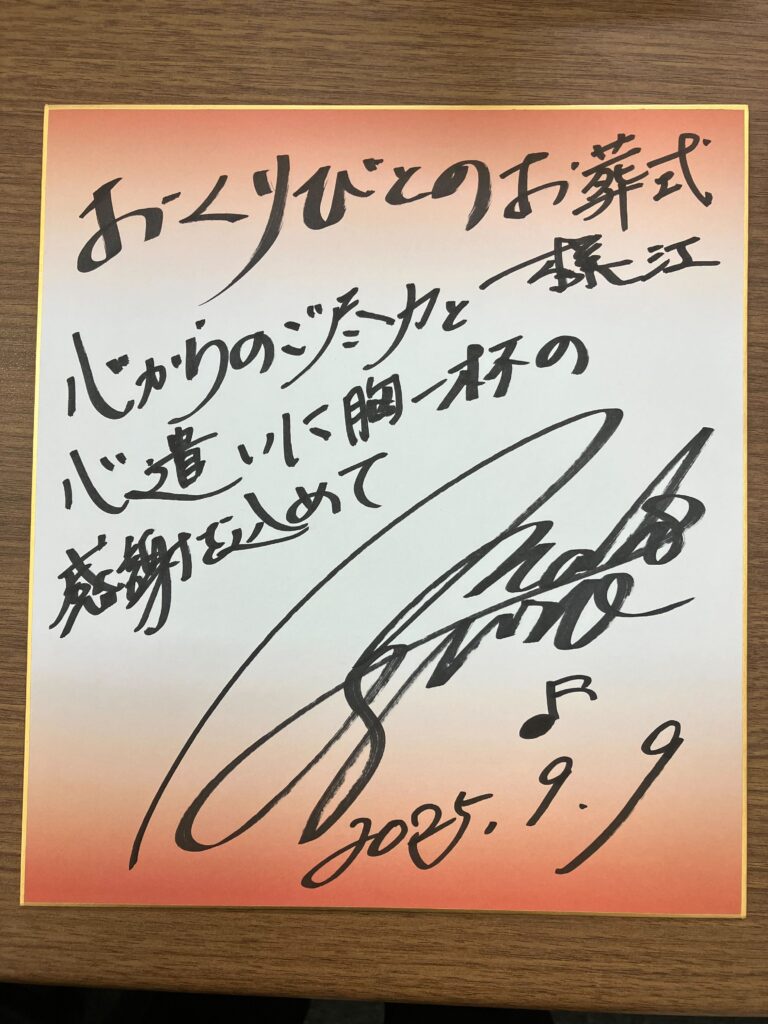 おくりびとのお葬式
様江
心からのご尽力と
心遣いに胸一杯の
感謝を込めて
2025.9.9